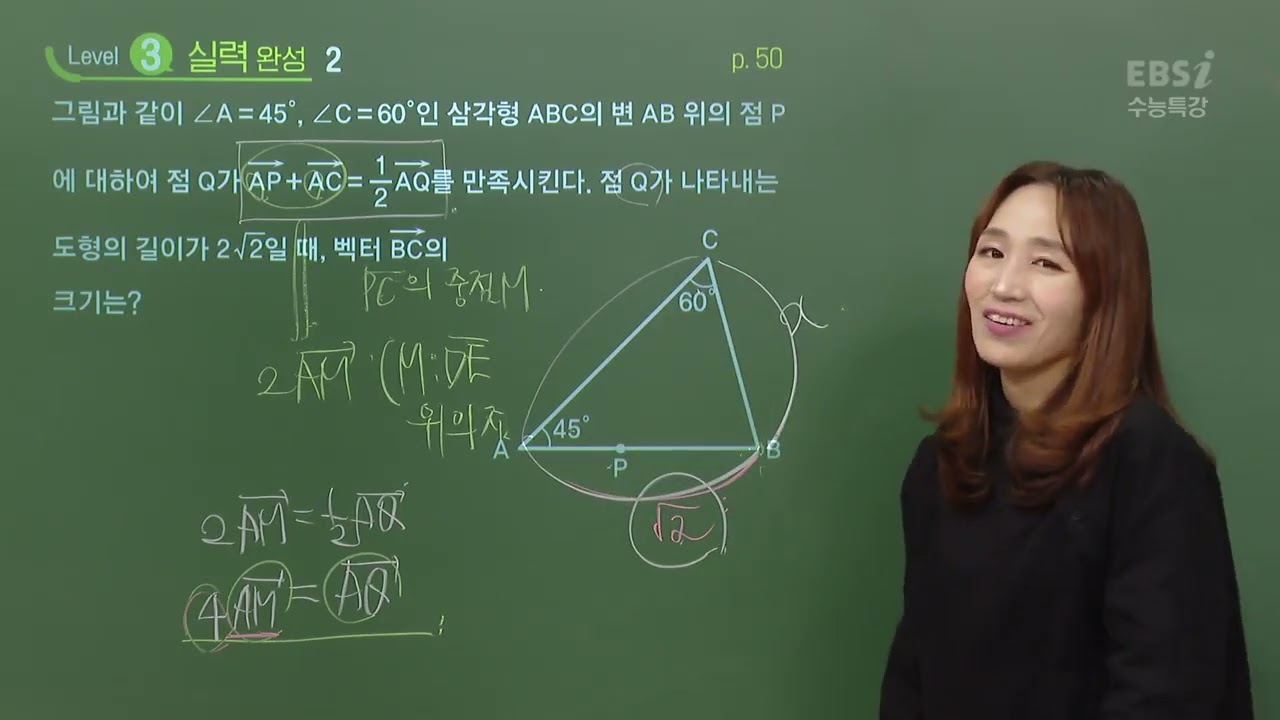 Level 3 실력 완성 2
p. 50
EBSi
수능특강
그림과 같이 ∠A=45°, ∠C=60°인 삼각형 ABC의 변 AB 위의 점 P
에 대하여 점 Q가 \overrightarrow{AP}+\overrightarrow{AC}=\frac{1}{2}\overrightarrow{AQ}를 만족시킨다. 점 Q가 나타내는
도형의 길이가 2√2일 때, 벡터 \overrightarrow{BC}의
크기는?
\overline{PC}의 중점M.
2\overrightarrow{AM} (M:\overline{DE}
위의 점
C
60°
x
45°
A
P
B
√2
2\overrightarrow{AM}=\frac{1}{2}\overrightarrow{AQ}
4\overrightarrow{AM}=\overrightarrow{AQ}